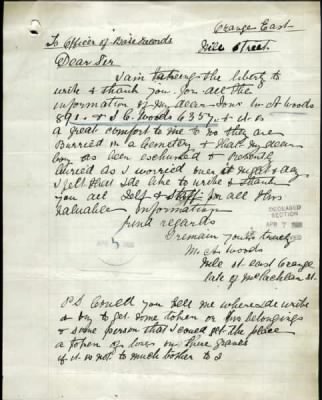 Orange East
To Officer of Base Records
Nile Street.
Dear Sir
I am taking the liberty to
write & thank you for all the
information of my dear Sons W A Woods
891 & S G. Woods 6357 & it is
a great comfort to me to no they are
Burried in a Cemetery & that my dear
boy as been exshumed &
buried as I worried over it night & day
I felt that I de like to write & thank
you all Self & Staff for all this
valuable information
kind regards
I remain yours truely
M. A Woods
Nile st east Orange
late of McLachlan st.
DECLASED
SECTION
APR 7
P.S. Could you tell me where Ide write
& try to get some token or this belongings
& some person that I could get the place
a token of love on there graves
if it is not to much bother to